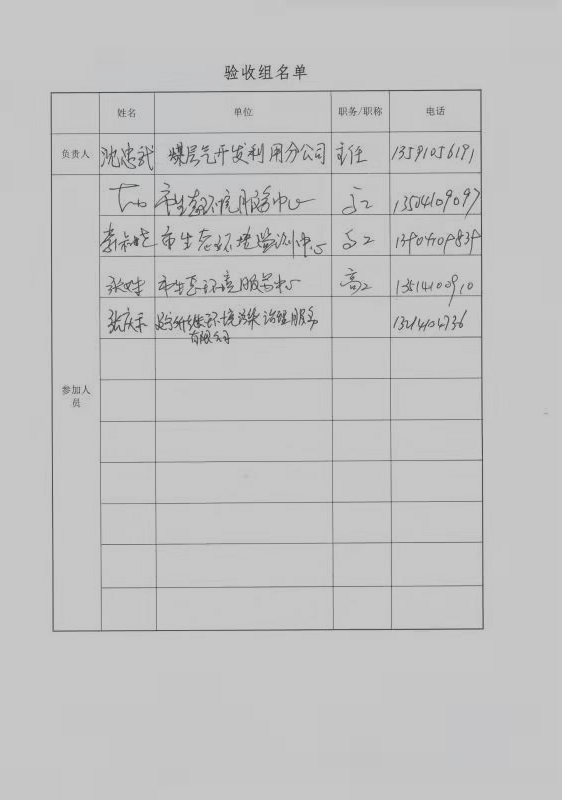 验收组名单
姓名 单位 职务/职称 电话
负责人 沈忠武 煤层气开发利用分公司 主任 13591056191
市生态环境服务中心 高工 13504109097
市生态环境监测中心 高工
市生态环境服务中心 高工 13514100910
张庆禾 环境污染治理服务
有限公司
参加人
员